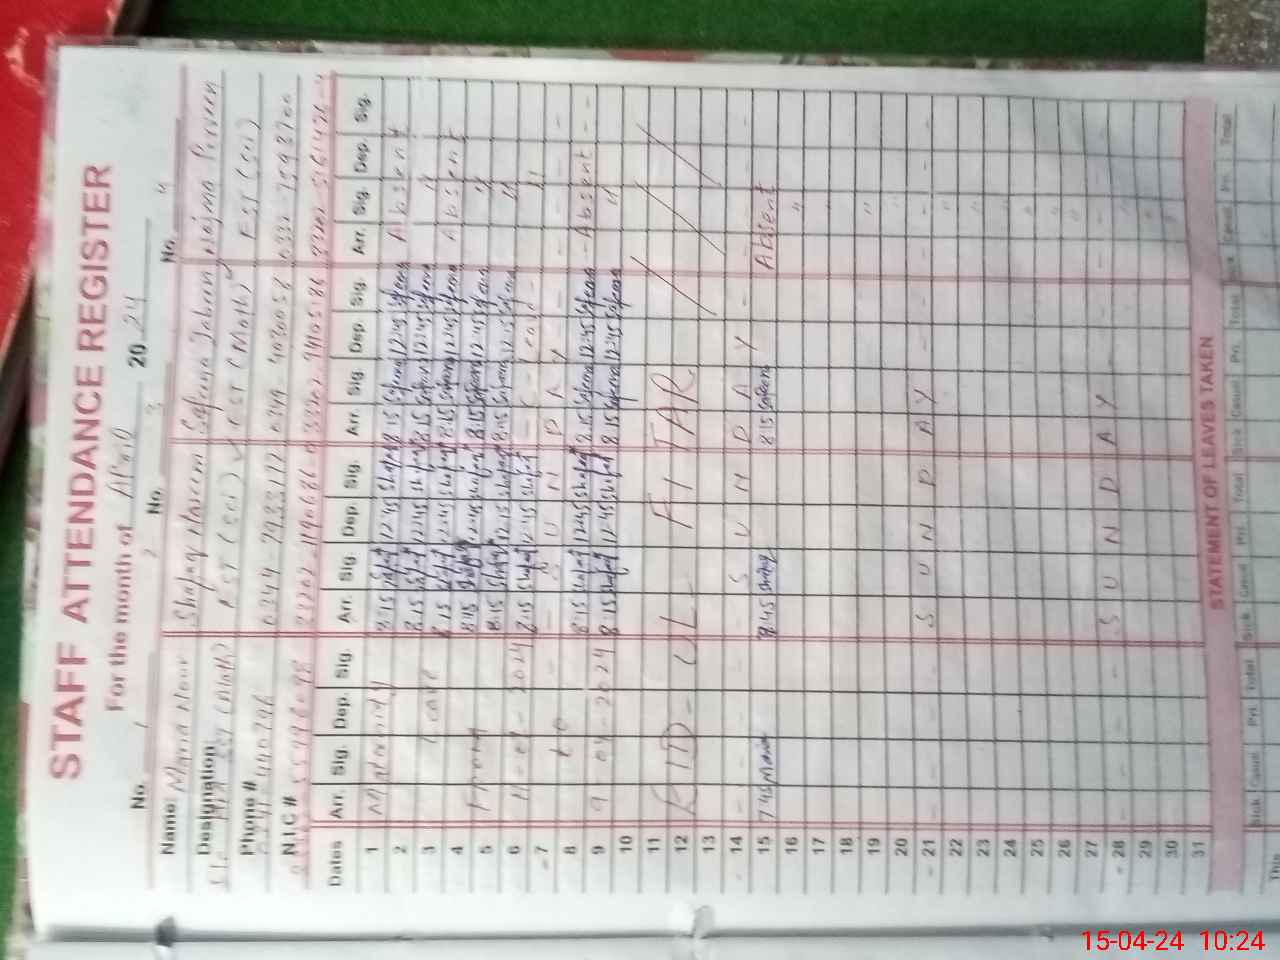 STAFF ATTENDANCE REGISTER
For the month of April 2024
No. 1 No. 2 No. 3 No. 4
Name: Maria Noor Shafaq Nareem Safeena Jabeen Najma Perveen
Designation: SST (Math) EST (Sci) EST (Math) EST (Sci)
Phone #
N.I.C #
Dates Arr. Sig. Dep. Sig. Arr. Sig. Dep. Sig. Arr. Sig. Dep. Sig. Arr. Sig. Dep. Sig.
1 Maternity 8:15 Shafaq 12:45 Shafaq 8:15 Safeena 12:45 Safeena Absent
2 8:15 Shafaq 12:45 Shafaq 8:15 Safeena 12:45 Safeena "
3 Leave 8:15 Shafaq 12:45 Shafaq 8:15 Safeena 12:45 Safeena Absent
4 From 8:15 Shafaq 12:45 Shafaq 8:15 Safeena 12:45 Safeena "
5 8:15 Shafaq 12:15 Shafaq 8:15 Safeena 12:15 Safeena "
6 2024 8:15 Shafaq 12:45 Shafaq - - Leave - "
7 to SUNDAY
8 8:15 Shafaq 12:45 Shafaq 8:15 Safeena 12:45 Safeena Absent
9 9-04-2024 8:15 Shafaq 12:45 Shafaq 8:15 Safeena 12:45 Safeena "
10
11
12 EID-UL-FITAR
13
14 SUNDAY
15 7:45 Maria 8:45 Shafaq 8:15 Safeena Absent
16 "
17
18
19 "
20
21 SUNDAY
22 "
23 "
24
25 "
26 "
27
28 SUNDAY
29
30
31
STATEMENT OF LEAVES TAKEN
Sick Casual Pri. Total Sick Casual Pri. Total Sick Casual Pri. Total Sick Casual Pri. Total
This
15-04-24 10:24